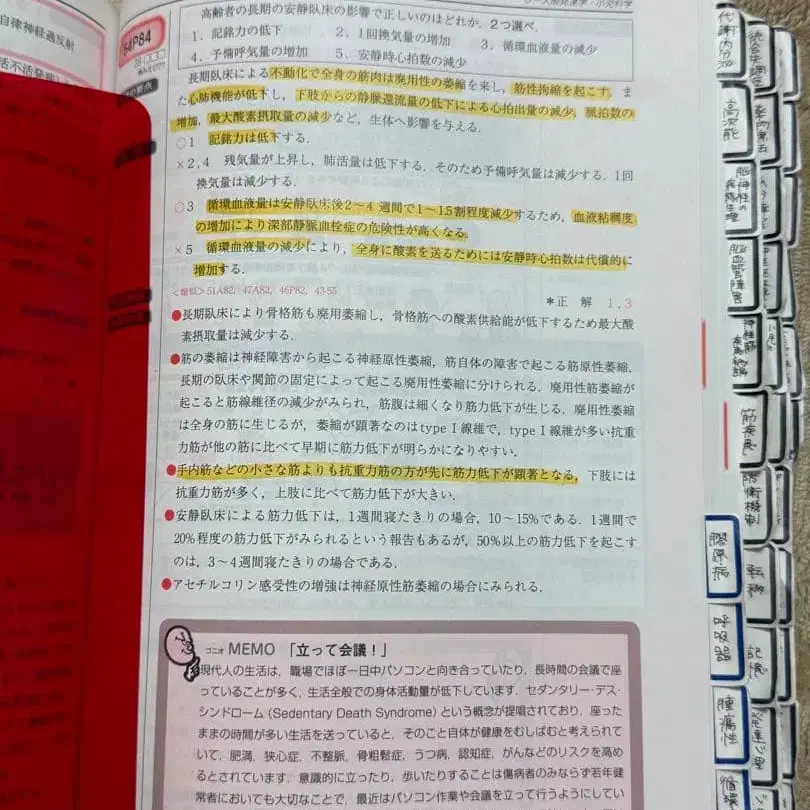 自律神経過反射
54P84
高齢者の長期の安静臥床の影響で正しいのはどれか．2つ選べ．
1．記銘力の低下　2．1回換気量の増加　3．循環血液量の減少
4．予備呼気量の増加　5．安静時心拍数の減少
長期臥床による不動化で全身の筋肉は廃用性の萎縮を来し，筋性拘縮を起こす．ま
た心肺機能が低下し，下肢からの静脈還流量の低下による心拍出量の減少，脈拍数の
増加，最大酸素摂取量の減少など，生体へ影響を与える．
○1　記銘力は低下する．
×2,4　残気量が上昇し，肺活量は低下する．そのため予備呼気量は減少する．1回
換気量は減少する．
○3　循環血液量は安静臥床後2～4週間で1～1.5割程度減少するため，血液粘稠度
の増加により深部静脈血栓症の危険性が高くなる．
×5　循環血液量の減少により，全身に酸素を送るためには安静時心拍数は代償的に
増加する．
＜類似＞51A82，47A82，46P82，43-55
＊正　解　1.3
●長期臥床により骨格筋も廃用萎縮し，骨格筋への酸素供給能が低下するため最大酸
素摂取量は減少する．
●筋の萎縮は神経障害から起こる神経原性萎縮，筋自体の障害で起こる筋原性萎縮，
長期の臥床や関節の固定によって起こる廃用性萎縮に分けられる．廃用性筋萎縮が
起こると筋線維径の減少がみられ，筋腹は細くなり筋力低下が生じる．廃用性萎縮
は全身の筋に生じるが，萎縮が顕著なのはtypeⅠ線維で，typeⅠ線維が多い抗重
力筋が他の筋に比べて早期に筋力低下が明らかになりやすい．
●手内筋などの小さな筋よりも抗重力筋の方が先に筋力低下が顕著となる．下肢には
抗重力筋が多く，上肢に比べて筋力低下が大きい．
●安静臥床による筋力低下は，1週間寝たきりの場合，10～15%である．1週間で
20%程度の筋力低下がみられるという報告もあるが，50%以上の筋力低下を起こす
のは，3～4週間寝たきりの場合である．
●アセチルコリン感受性の増強は神経原性筋萎縮の場合にみられる．
ゴニオ MEMO 「立って会議！」
現代人の生活は，職場でほぼ一日中パソコンと向き合っていたり，長時間の会議で座
っていることが多く，生活全般での身体活動量が低下しています．セダンタリー・デス・
シンドローム（Sedentary Death Syndrome）という概念が提唱されており，座った
ままの時間が多い生活を送っていると，そのこと自体が健康をむしばむと考えられて
いて，肥満，狭心症，不整脈，骨粗鬆症，うつ病，認知症，がんなどのリスクを高め
るとされています．意識的に立ったり，歩いたりすることは傷病者のみならず若年健
常者においても大切なことで，最近はパソコン作業や会議を立って行うようにしてい
代謝内分泌
高次能
脳血管障害
筋疾患
膠原病
呼吸器
腫瘍性
循環
防衛機制
転移
記憶